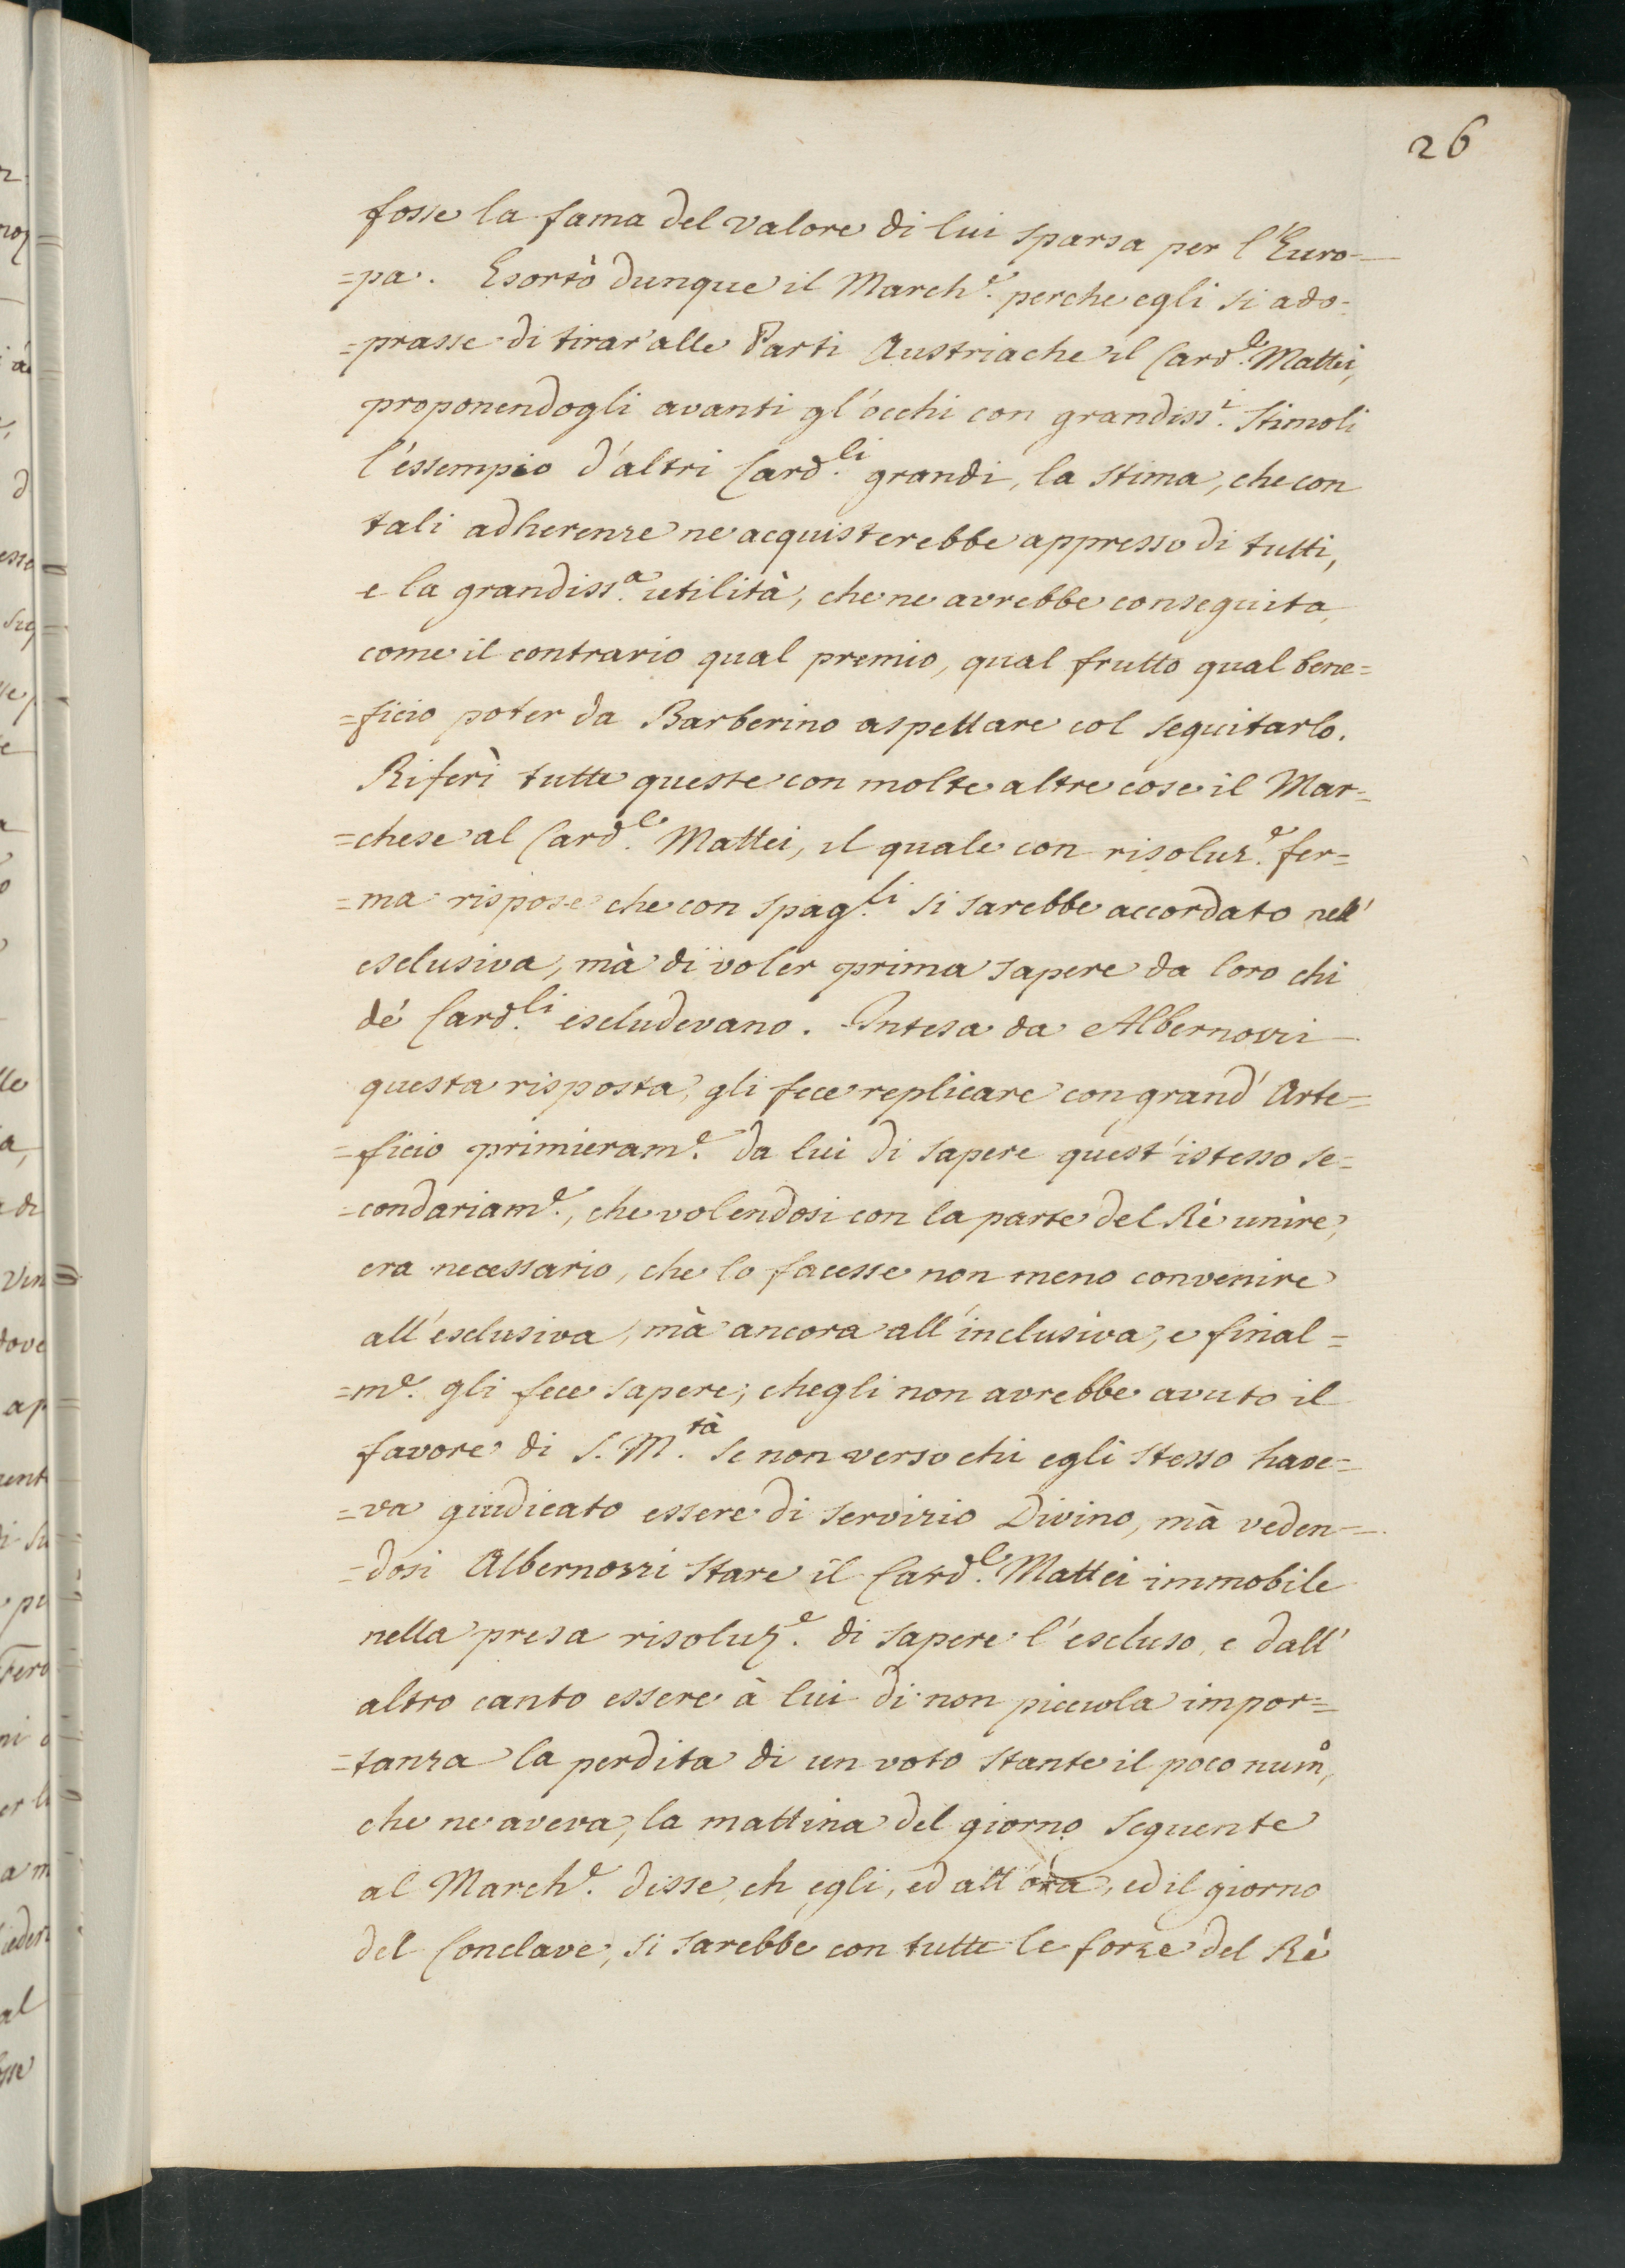 26
fosse la fama del valore di lui sparsa per l'Euro-
=pa. Esortò dunque il March.e perche egli si ado-
=prasse di tirar'alle Parti Austriache il Card.e Mattei,
proponendogli avanti gl'occhi con grandiss.i stimoli
l'essempio d'altri Card.li grandi, la stima, che con
tali adherenze ne acquisterebbe appresso di tutti,
e la grandiss.a utilità, che ne avrebbe conseguita,
come il contrario qual premio, qual frutto qual bene=
=ficio poter da Barberino aspettare col seguitarlo.
Riferì tutte queste con molte altre cose il Mar=
=chese al Card.e Mattei, il quale con risoluz.e fer=
=ma rispose che con spag.li si sarebbe accordato nell'
esclusiva, mà di voler prima sapere da loro chi
dé Card.li escludevano. Intesa da Albernozzi
questa risposta, gli fece replicare con grand'Arte=
=ficio primieram.e da lui di sapere quest'istesso se=
=condariam.e, che volendosi con la parte del Rè unire,
era necessario, che lo facesse non meno convenire
all'esclusiva, mà ancora all'inclusiva, e final=
=m.e gli fece sapere, chegli non avrebbe avuto il
favore di S. M.tà se non verso chi egli stesso have=
=va giudicato essere di servizio Divino, mà veden=
=dosi Albernozzi stare il Card.e Mattei immobile
nella presa risoluz.e di sapere l'escluso, e dall'
altro canto essere à lui di non picciola impor=
=tanza la perdita di un voto stante il poco num.o,
che ne aveva, la mattina del giorno seguente
al March.e disse, ch egli, ed all'ora, ed il giorno
del Conclave, si sarebbe con tutte le forze del Rè